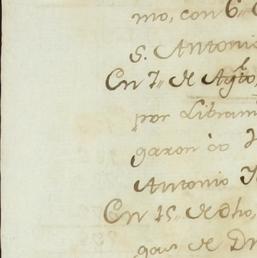 mo, con 6
S. Antonio
En 7,, de Agto,
por Libram
garon á
Antonio
En 15,, de dho,
gar de